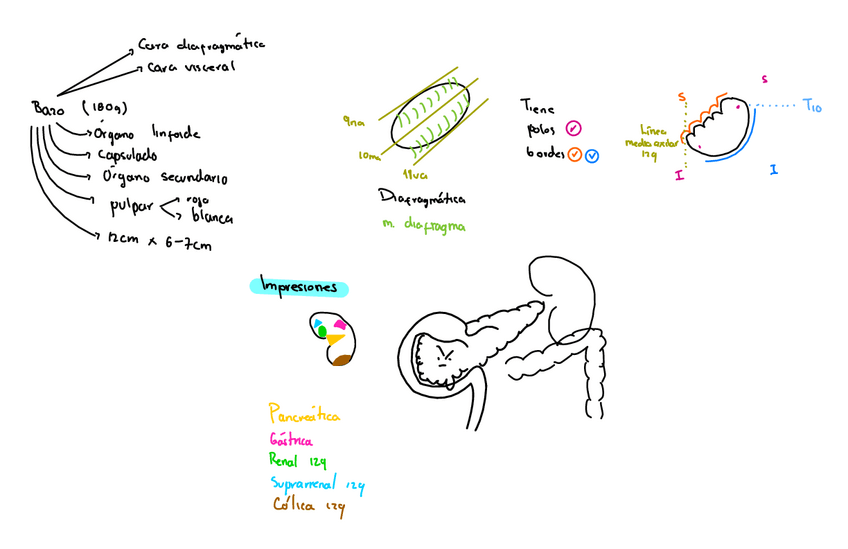 Cara diafragmática
Cara visceral
Bazo (180g)
Órgano linfoide
Capsulado
Órgano secundario
pulpar
roja
blanca
12cm x 6-7cm
9na
10ma
11va
Diafragmática
m. diafragma
Tiene
polos
bordes
S
S
T10
Línea
medioaxilar
izq
I
I
Impresiones
Pancreática
Gástrica
Renal izq
Suprarrenal izq
Cólica izq